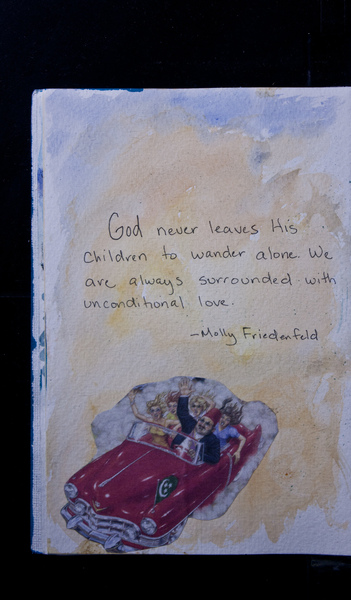 God never leaves His
Children to wander alone. We
are always surrounded with
unconditional love.
—Molly Friedenfeld